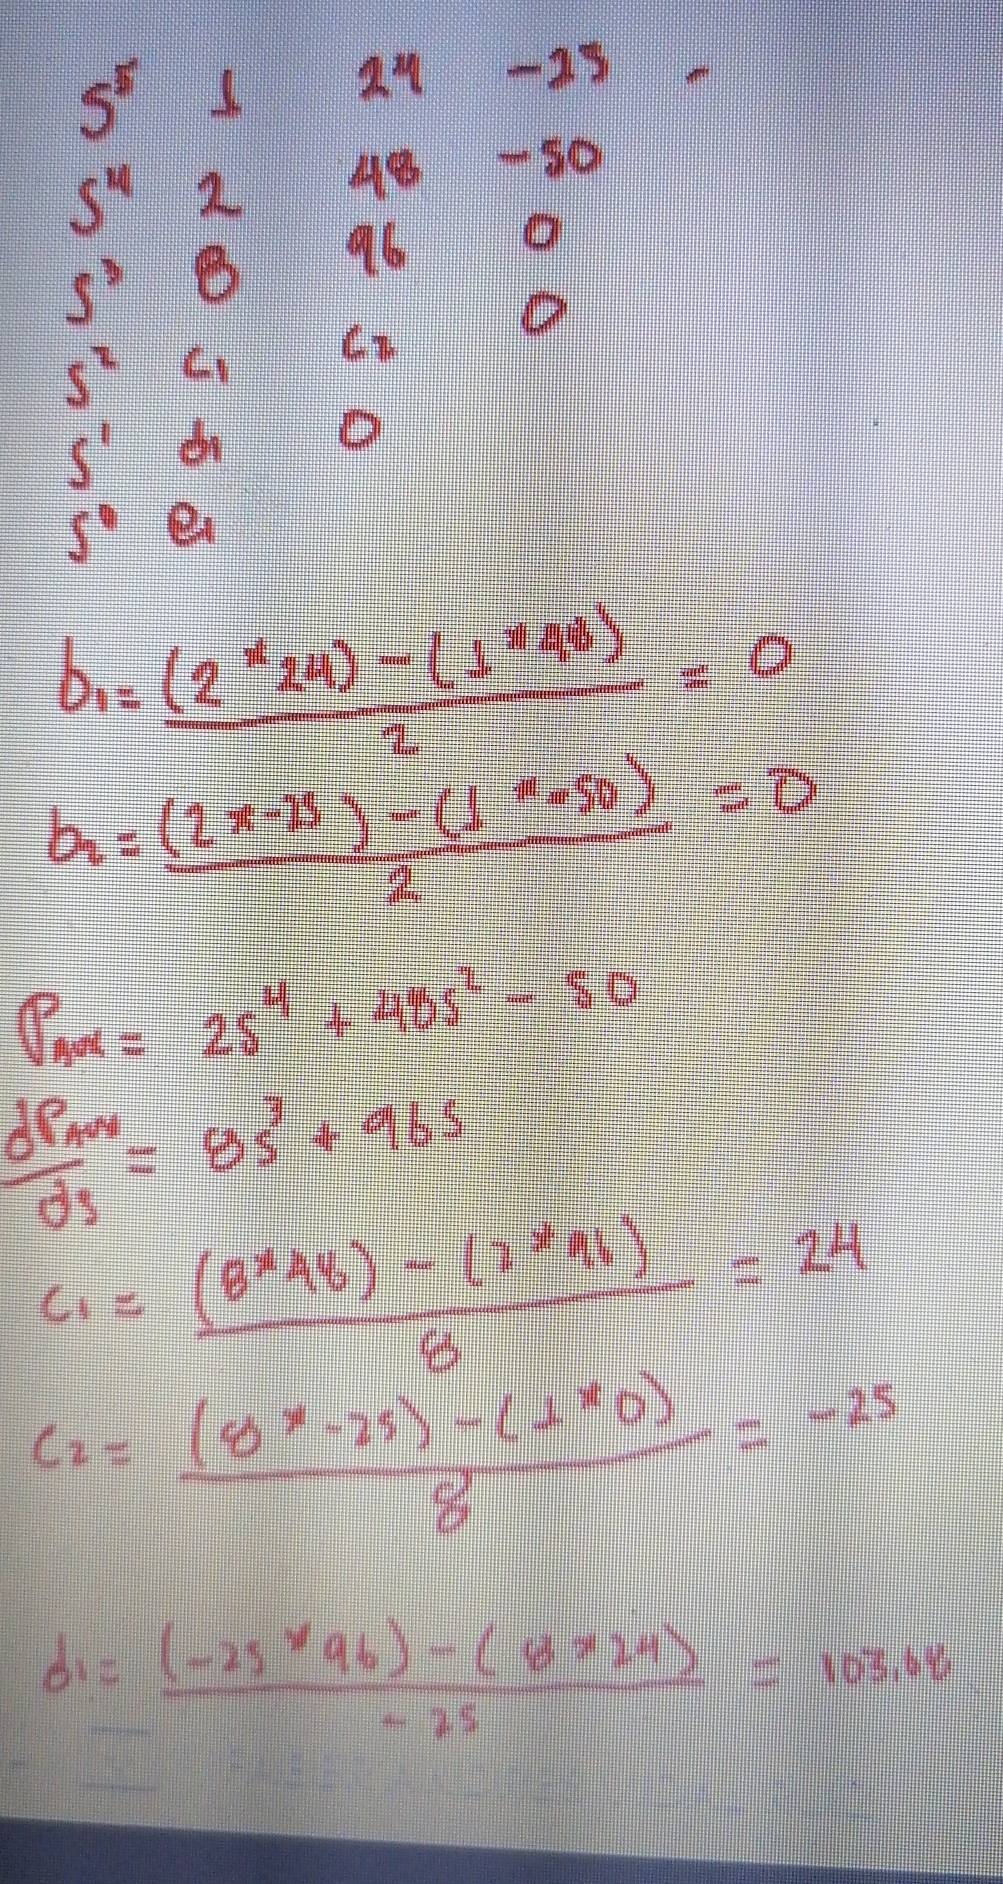 S⁵ 1 24 -25 -
S⁴ 2 48 -50
S³ 8 96 0
S² C₁ C₂ 0
S¹ d₁ 0
S⁰ e₁
b₁ = (2*24) - (1*48) / 2 = 0
b₂ = (2*-25) - (1*-50) / 2 = 0
P_Aux = 2S⁴ + 48S² - 50
dP_Aux / ds = 8S³ + 96S
C₁ = (8*48) - (2*96) / 8 = 24
C₂ = (8*-25) - (1*0) / 8 = -25
d₁ = (-25*96) - (8*24) / -25 = 103,68